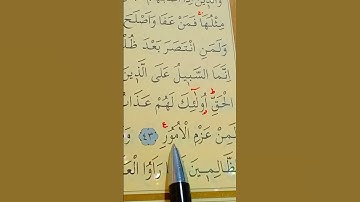 مِثْلُهَاۚ فَمَنْ عَفَا وَاَصْلَحَ
وَلَمَنِ انْتَصَرَ بَعْدَ ظُلْ
اِنَّمَا السَّب۪يلُ عَلَى الَّذ۪ينَ
الْحَقِّۜ اُو۬لٰٓئِكَ لَهُمْ عَذَابٌ
لَمِنْ عَزْمِ الْاُمُورِ ﴿٤٣﴾ وَمَ
لظَّالِم۪ينَ رَاَوُا الْعَ